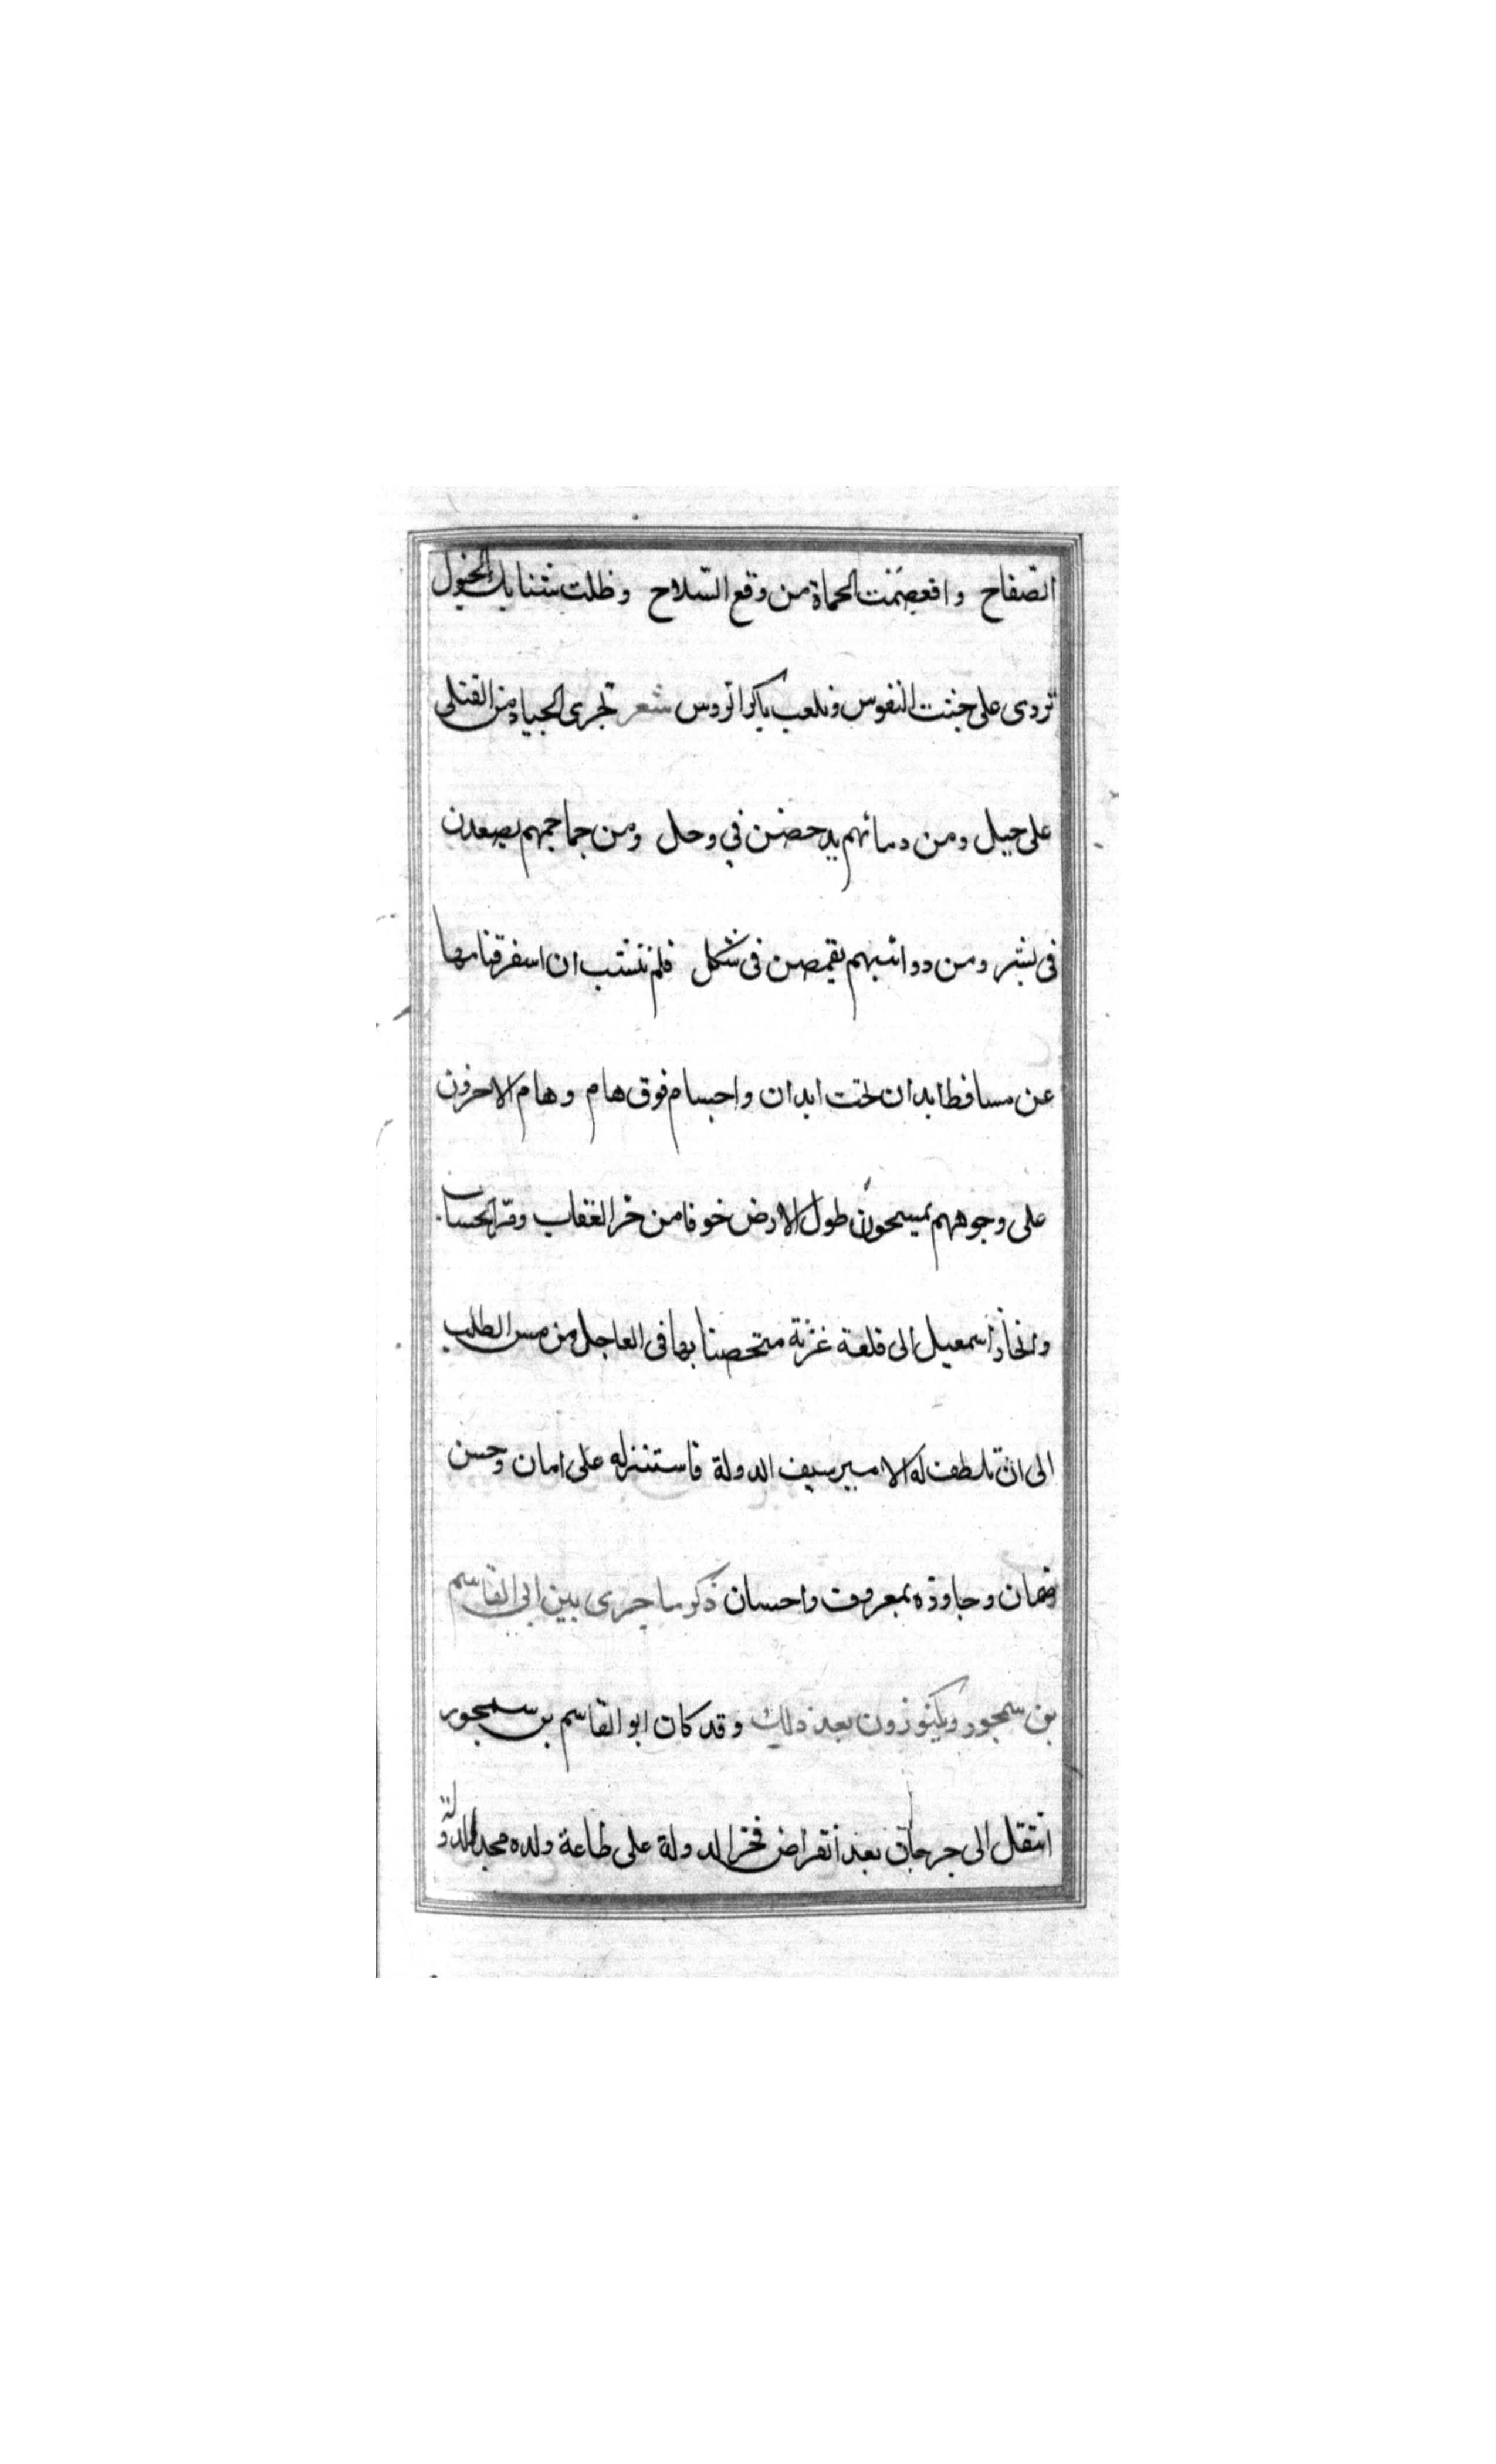 الصّفاح وافعصَمت الحماة من وقع السّلاح وظلت سَنابك الخيول
تردى على جثث النفوس وتلعب باكرالروس شعر تجرى الجياد من القتلى
على جبل ومن دمائهم يدحضن في وحل ومن جماجمهم يصعدن
فى نشر ومن دوائبهم يقمصن فى شكل فلم تنشب ان اسفر قتامها
عن مساقط ابدان تحت ابدان واجسام فوق هام وهام الاخرون
على وجوههم يمسحون طول الارض خوفا من حر العقاب ومرّ الحساب
وانحاز اسمعيل الى قلعة غزنة متحصنا بها فى العاجل من مس الطلب
الى ان تلطف له الامير سيف الدولة فاستنزله على امان وحسن
ضمان وجاوزه بمعروف واحسان ذكر ما جرى بين ابى القاسم
بن سمجور وبكتوزون بعد ذلك وقد كان ابو القاسم بن سيمجور
انتقل الى جرجان بعد انقراض فخر الدولة على طاعة ولده مجد الدولة